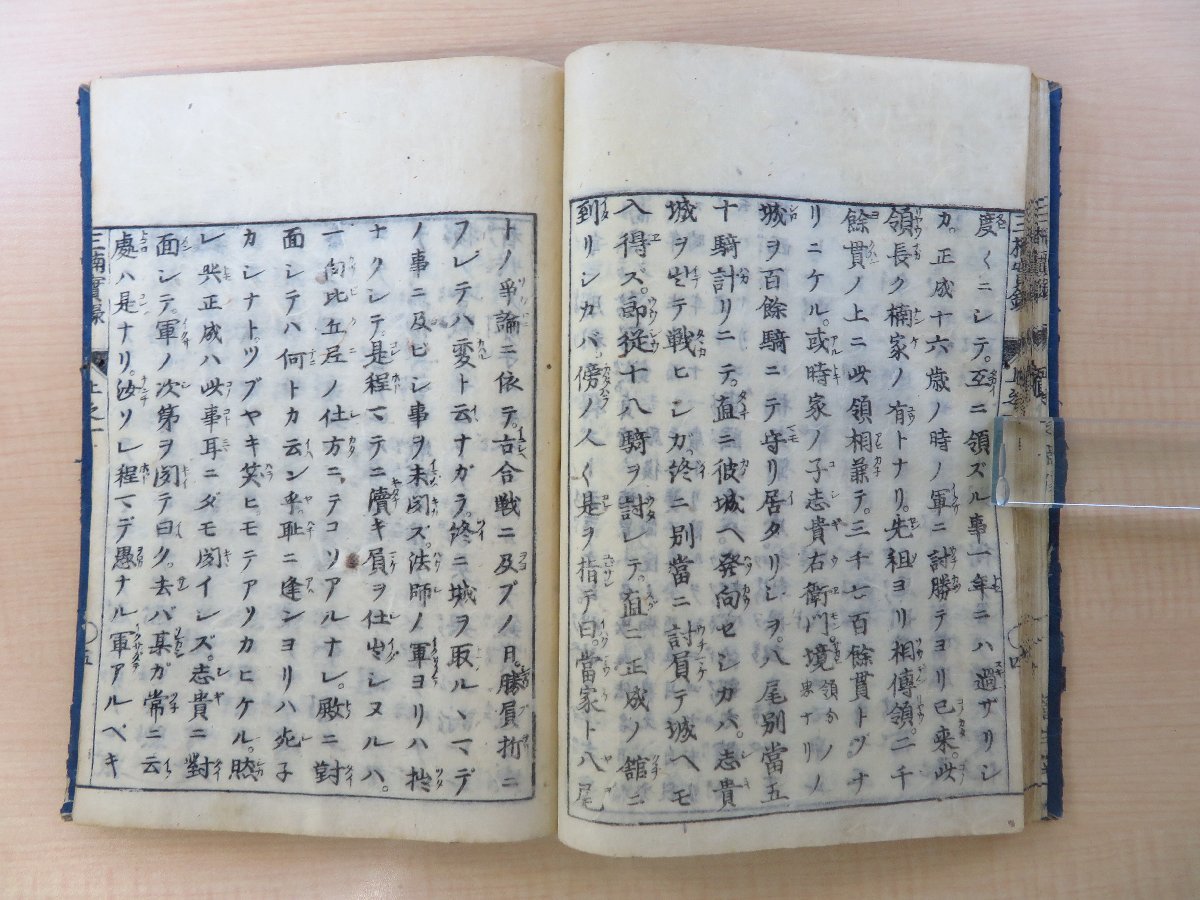 度々ニシテ。互ニ領ズル事一年ニハ過ザリシ
カ。正成十六歳ノ時ノ軍ニ討勝テヨリ已来。此
領長ク楠家ノ有トナリ。先祖ヨリ相傳領。二千
餘貫ノ上ニ此領相兼テ。三千七百餘貫トゾナ
リニケル。或時家ノ子志貴右衛門境領分ノ界ナリノ
城ヲ百餘騎ニテ守リ居タリシヲ。八尾別當五
十騎計リニテ。直ニ彼城ヘ發向セシカバ。志貴
城ヲ出テ戦ヒシガ。終ニ別當ニ討負テ城ヘモ
入得ス。郎從十八騎ヲ討レテ。直ニ正成ノ舘ニ
到リシカバ。傍ノ人々是ヲ指テ曰。當家ト八尾
トノ爭論ニ依テ。古合戦ニ及ブノ日。勝負折ニ
フレテハ変ト云ナガラ。終ニ城ヲ取ルヽマデ
ノ事ニ及ビシ事ヲ未聞ズ。法師ノ軍ヨリハ拙
ナクシテ。是程マテニ穢キ負ヲ仕出シヌルハ。
一向比丘尼ノ仕方ニテコソアルナレ。殿ニ對
面シテハ何トカ云ン乎。耻ニ逢ンヨリハ死子
カシナト。ツブヤキ笑ヒモテアツカヒケル。然
レ共正成ハ此事耳ニダモ聞イレズ。志貴ニ對
面シテ。軍ノ次第ヲ聞テ曰ク。去バ某ガ常ニ云
處ハ是ナリ。汝ソレ程マデ愚ナル軍アルベキ
三楠實録
上之一
〇五